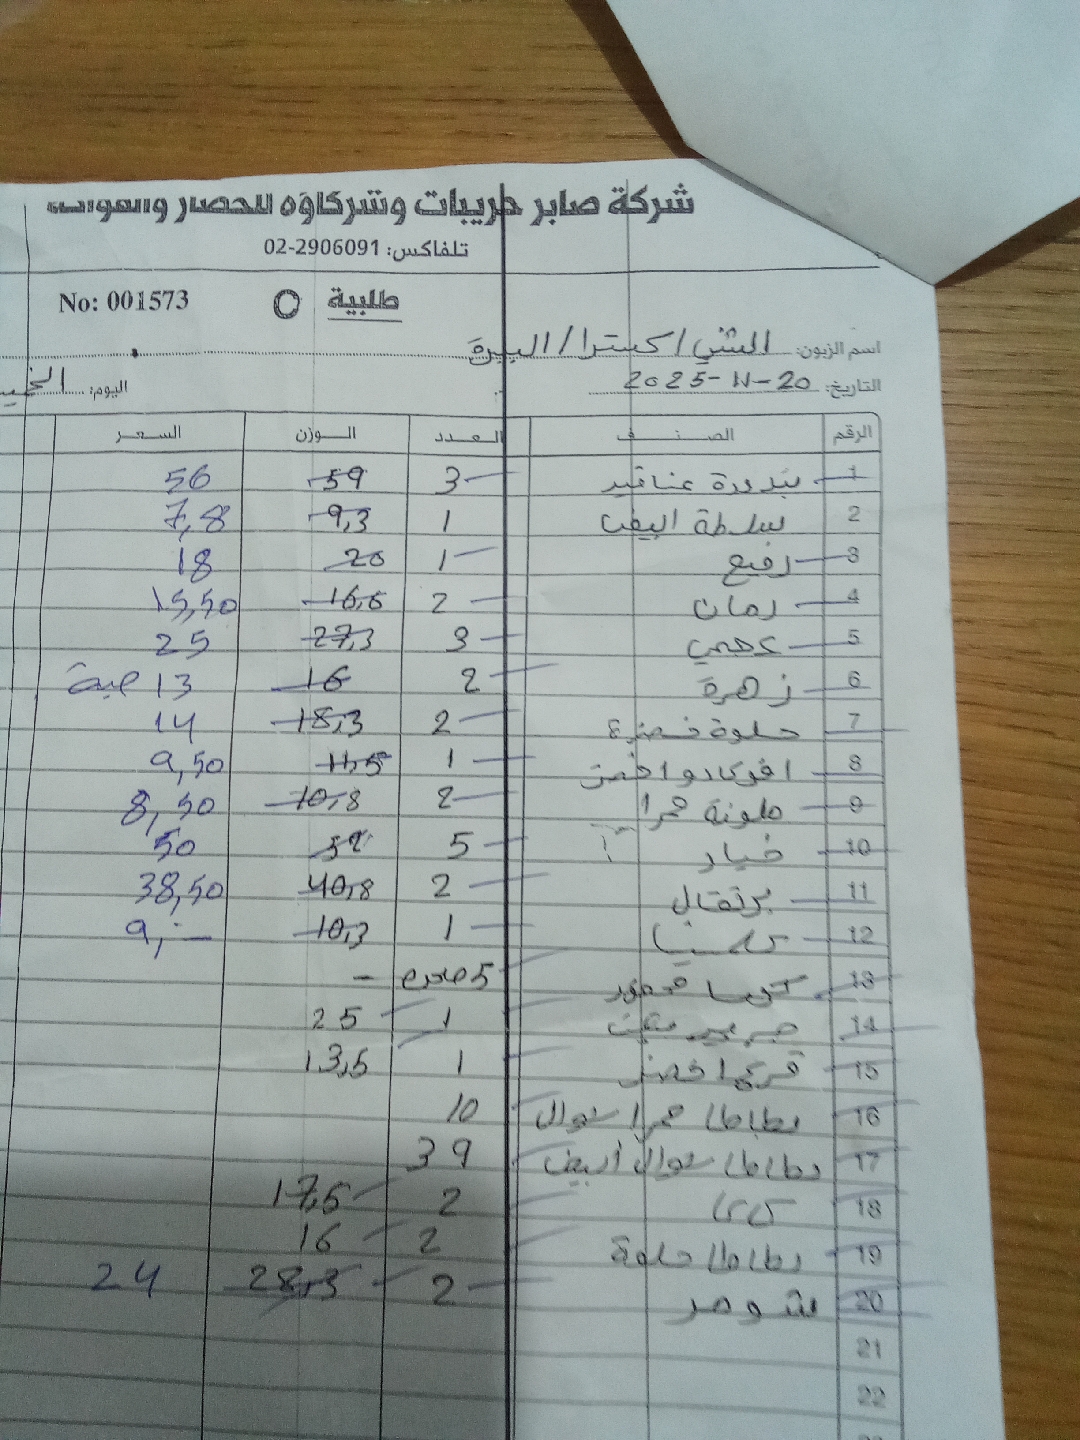 شركة صابر طريبات وشركاؤه للخضار والفواكه
تلفاكس: 02-2906091
طلبية No: 001573
اسم الزبون: الشني / كسترا / البيرة
التاريخ: 20-11-2025 اليوم: الخميس
الرقم الصنف العدد الوزن السعر
1 بندورة عناقيد 3 59 56
2 سلطة البيضا 1 9,3 7,8
3 رفيع 1 20 18
4 رمان 2 16,5 15,50
5 عجمي 3 27,3 25
6 زهرة 2 16 13 حبة
7 حلوة خضرة 2 18,3 14
8 افوكادو اخضر 1 11,5 9,50
9 ملونة حمرا 2 10,8 8,50
10 خيار 5 52 50
11 برتقال 2 40,8 38,50
12 1 10,3 9,-
13 5 -
14 1 25
15 قرع اخضر 1 13,5
16 بطاطا حمرا شوال 10
17 بطاطا شوال أبيض 39
18 2 17,5
19 بطاطا حلوة 2 16
20 شومر 2 28,3 24
21
22